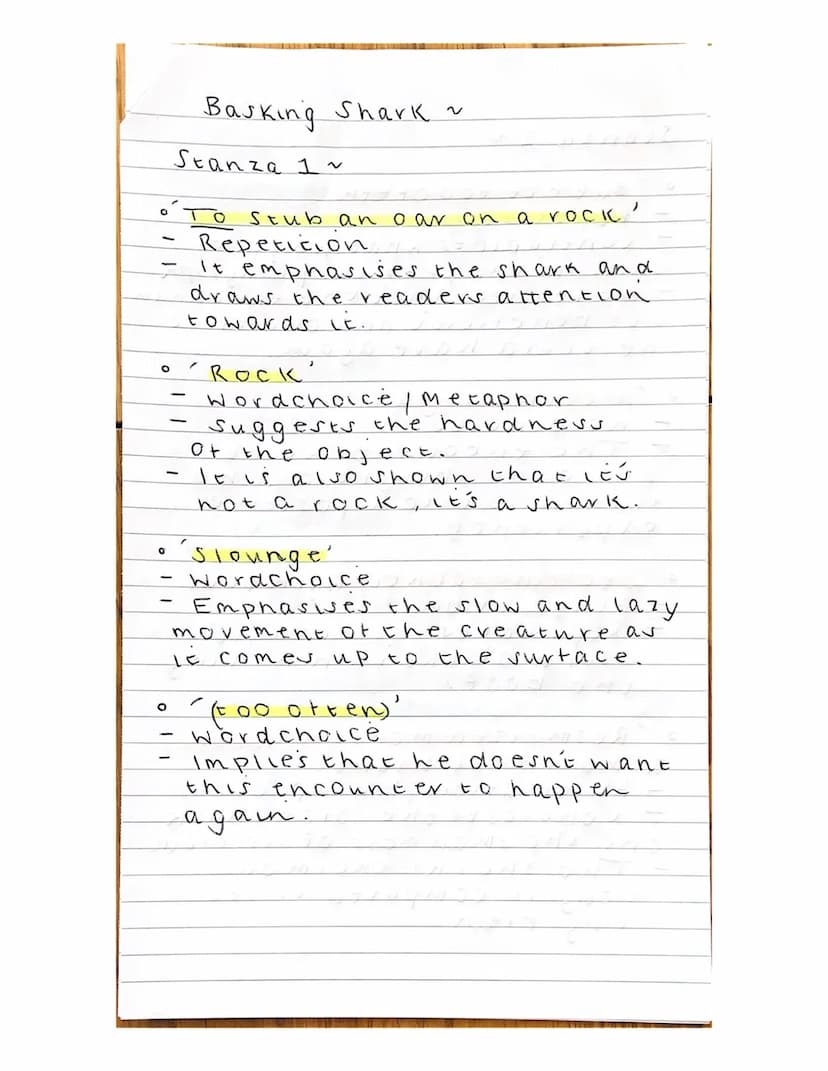 Basking Shark ~
Stanza 1 ~
° 'To stub an oar on a rock'
- Repetition
- It emphasises the shark and
draws the readers attention
towards it.
° 'Rock'
- Wordchoice / Metaphor
- suggests the hardness
of the object.
- It is also shown that it's
not a rock, it's a shark.
° 'Slounge'
- Wordchoice
- Emphasises the slow and lazy
movement of the creature as
it comes up to the surface.
° '(too often)'
- Wordchoice
- Implies that he doesn't want
this encounter to happen
again.